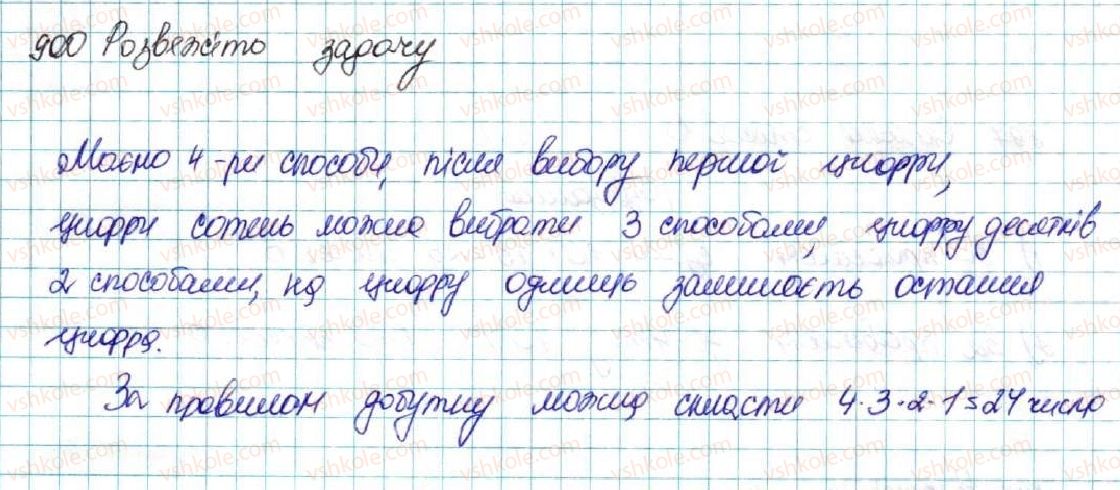 900 Розвежіть задачу
Маємо 4-ри способи, після вибору першої цифри,
цифри сотень можна вибрати 3 способами, цифру десятків
2 способами, на цифру одиниць залишаєть остання
цифра.
За правилом добутку можна скласти 4·3·2·1=24 число